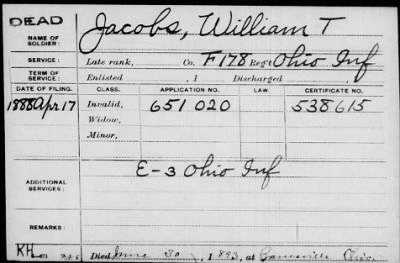 DEAD
NAME OF SOLDIER: Jacobs, William T
SERVICE: Late rank, Co. F 178 Reg't Ohio Inf
TERM OF SERVICE: Enlisted , 1 Discharged , 1
DATE OF FILING. CLASS. APPLICATION NO. LAW. CERTIFICATE NO.
1888 Apr 17 Invalid, 651 020 538615
Widow,
Minor,
ADDITIONAL SERVICES: E-3 Ohio Inf
REMARKS:
RH Died June 30, 1893, at